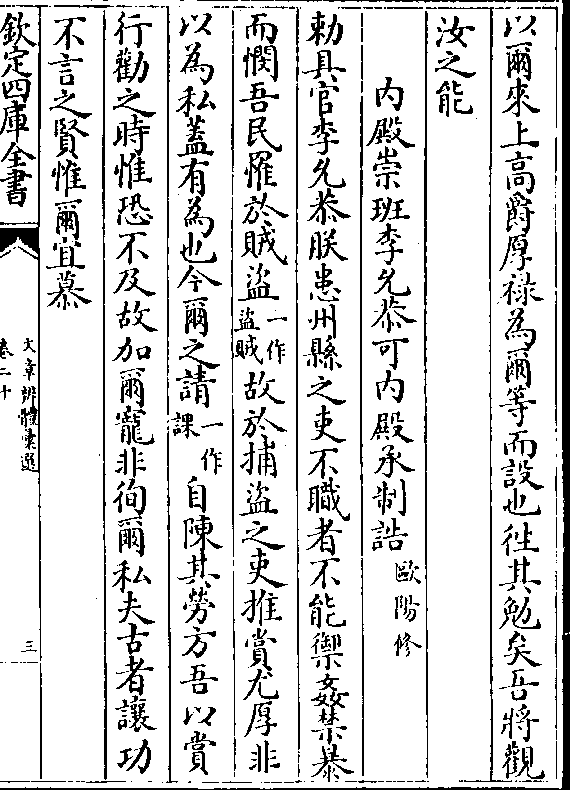 以爾來上高爵厚祿為爾等而設也徃其勉矣吾將觀
汝之能
内殿崇班李允恭可内殿承制誥 歐陽修
勅具官李允恭朕患州縣之吏不職者不能禦姦禁暴
而憫吾民罹於賊盜一作盜賊故於捕盜之吏推賞尤厚非
以為私蓋有為也今爾之請一作課自陳其勞方吾以賞
行勸之時惟恐不及故加爾寵非徇爾私夫古者讓功
不言之賢惟爾宜慕
欽定四庫全書
文章辨體彙選
卷二十
三